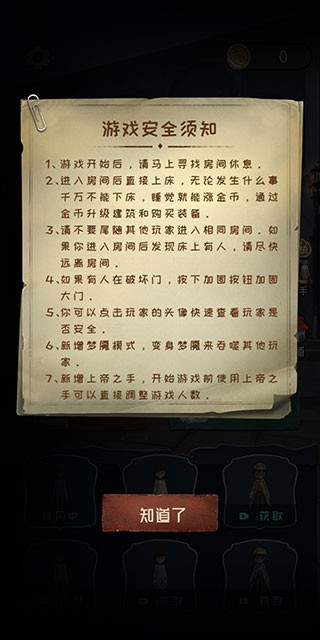 0
游戏安全须知
1、游戏开始后，请马上寻找房间休息．
2、进入房间后直接上床，无论发生什么事
千万不能下床，睡觉就能涨金币，通过
金币升级建筑和购买装备．
3、请不要尾随其他玩家进入相同房间．如
果你进入房间后发现床上有人，请尽快
远离房间．
4、如果有人在破坏门，按下加固按钮加固
大门．
5、你可以点击玩家的头像快速查看玩家是
否安全．
6、新增梦魇模式，变身梦魇来吞噬其他玩
家．
7、新增上帝之手，开始游戏前使用上帝之
手可以直接调整游戏人数．
使用中
获取
知道了
获取